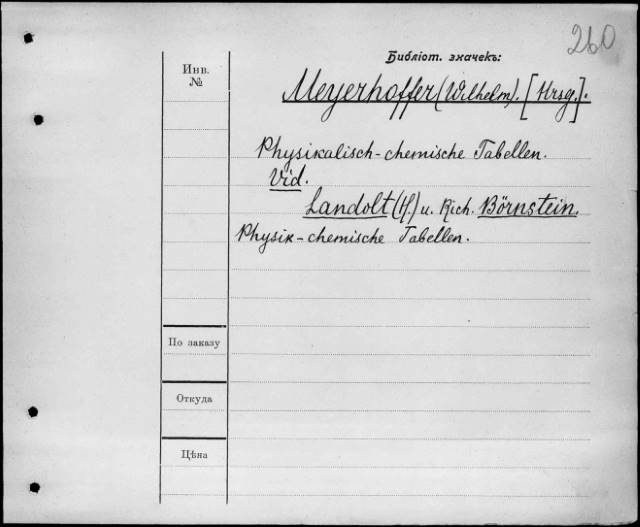 260
Библіот. значекъ:
Инв.
№
Meyerhoffer (Wilhelm). [Hrsg.].
Physikalisch-chemische Tabellen.
Vid.
Landolt (H.) u. Rich. Börnstein.
Physik-chemische Tabellen.
По заказу
Откуда
Цѣна